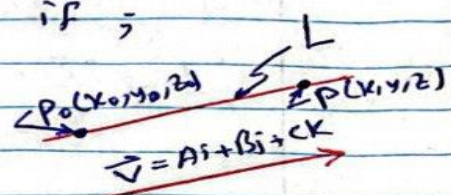 if ;
L
P₀(x₀,y₀,z₀)
P(x,y,z)
V⃗ = Ai+Bj+CK